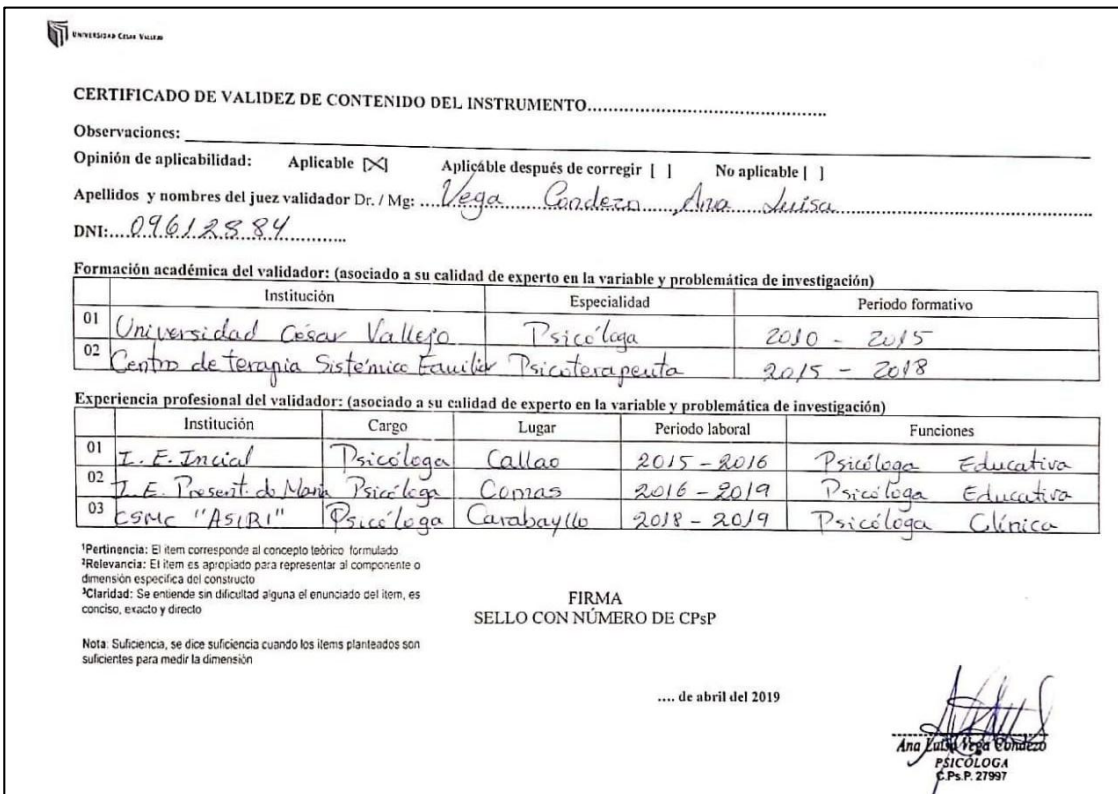 UNIVERSIDAD CESAR VALLEJO
CERTIFICADO DE VALIDEZ DE CONTENIDO DEL INSTRUMENTO................................................
Observaciones:
Opinión de aplicabilidad: Aplicable [X] Aplicable después de corregir [ ] No aplicable [ ]
Apellidos y nombres del juez validador Dr. / Mg: Vega Condezo Ana Luisa
DNI:....09612884
Formación académica del validador: (asociado a su calidad de experto en la variable y problemática de investigación)
Institución Especialidad Periodo formativo
01 Universidad César Vallejo Psicóloga 2010 - 2015
02 Centro de terapia Sistémica Familiar Psicoterapeuta 2015 - 2018
Experiencia profesional del validador: (asociado a su calidad de experto en la variable y problemática de investigación)
Institución Cargo Lugar Periodo laboral Funciones
01 I. E. Incial Psicóloga Callao 2015 - 2016 Psicóloga Educativa
02 I. E. Present. de Maria Psicóloga Comas 2016 - 2019 Psicóloga Educativa
03 CSMC "ASIRI" Psicóloga Carabayllo 2018 - 2019 Psicóloga Clínica
¹Pertinencia: El item corresponde al concepto teórico formulado
²Relevancia: El item es apropiado para representar al componente o
dimensión especifica del constructo
³Claridad: Se entiende sin dificultad alguna el enunciado del item, es
conciso, exacto y directo
FIRMA
SELLO CON NÚMERO DE CPsP
Nota: Suficiencia, se dice suficiencia cuando los items planteados son
suficientes para medir la dimensión
.... de abril del 2019
Ana Luisa Vega Condezo
PSICÓLOGA
C.Ps.P. 27997